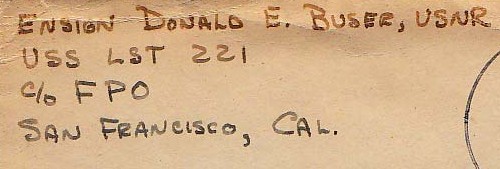 Ensign Donald E. Buser, USNR
USS LST 221
c/o FPO
San Francisco, Cal.